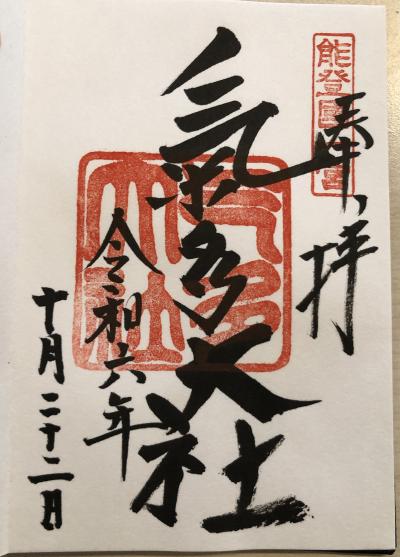 能登國一宮
奉拝
氣多大社
氣多大社
令和六年
十月二十二日